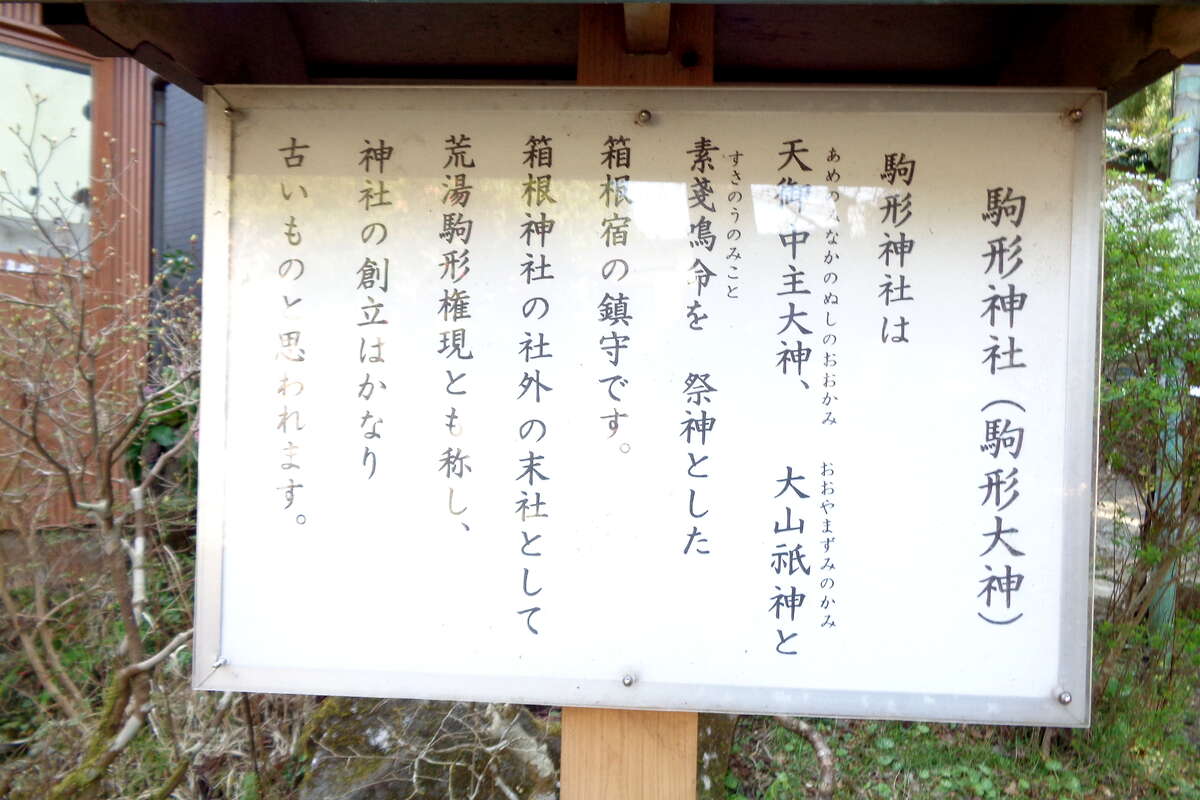 駒形神社(駒形大神)
駒形神社は
あめのみなかのぬしのおおかみ おおやまずみのかみ
天御中主大神、 大山祇神と
すさのうのみこと
素戔嗚命を 祭神とした
箱根宿の鎮守です。
箱根神社の社外の末社として
荒湯駒形権現とも称し、
神社の創立はかなり
古いものと思われます。